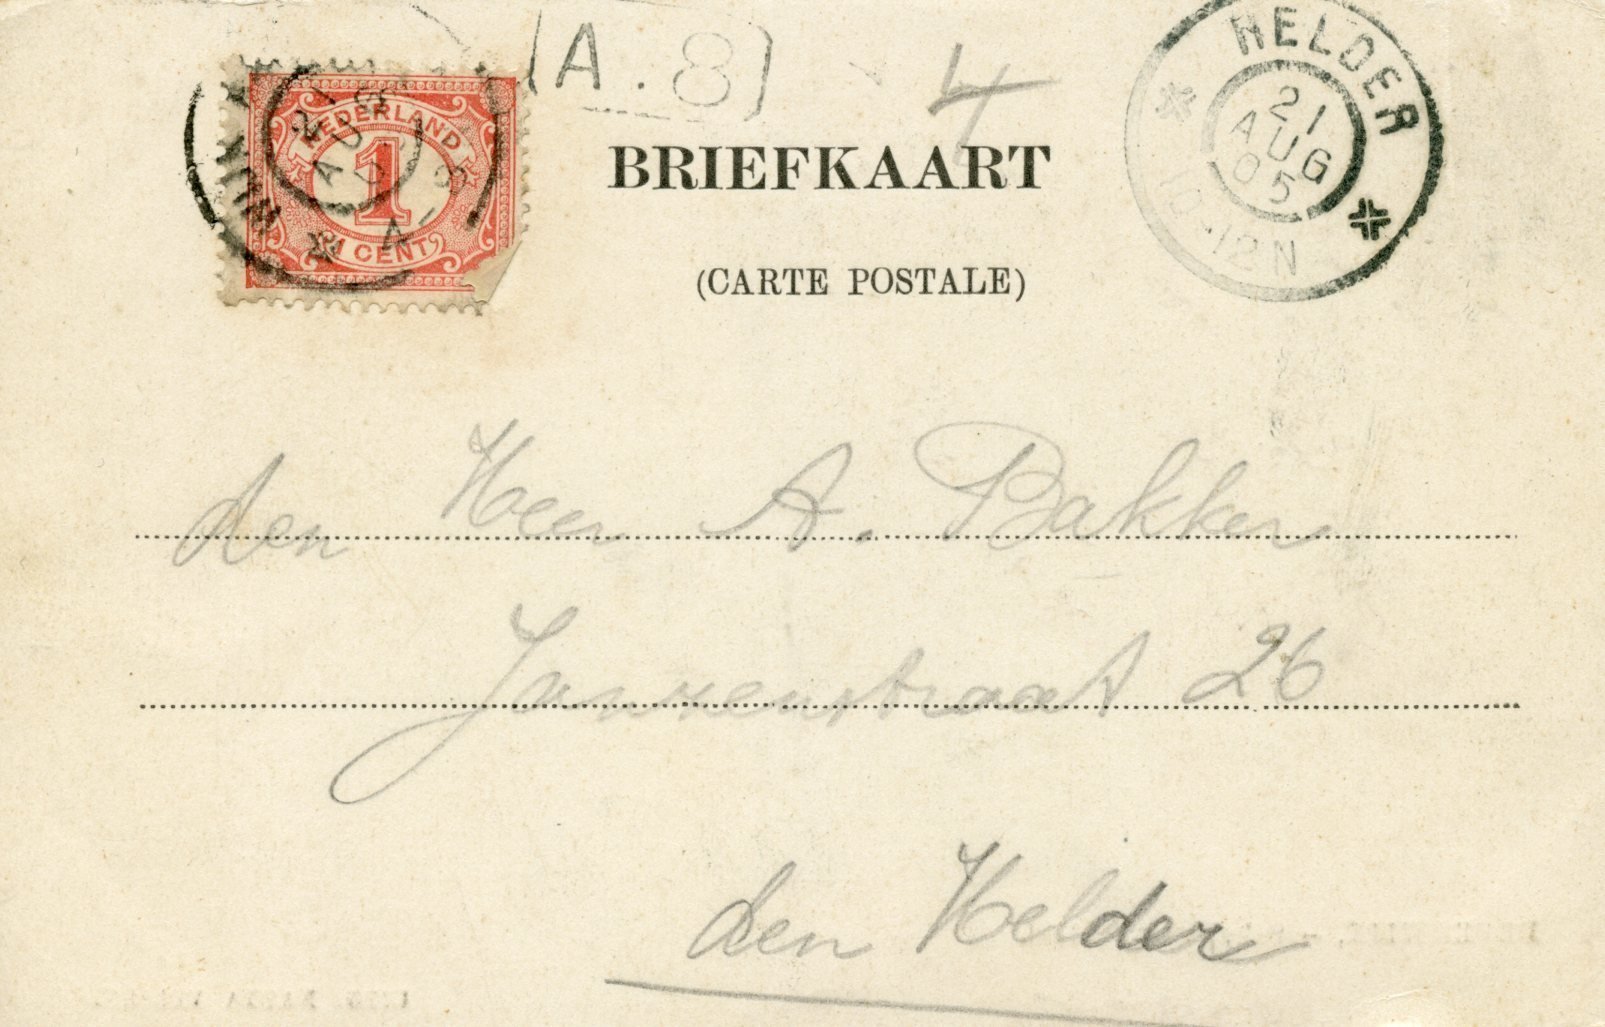 (A.8)
4
NEDERLAND
1
1 CENT
21
AUG
BRIEFKAART
(CARTE POSTALE)
HELDER
21
AUG
05
12N
den Heer A. Bakker
Janzenstraat 26
den Helder